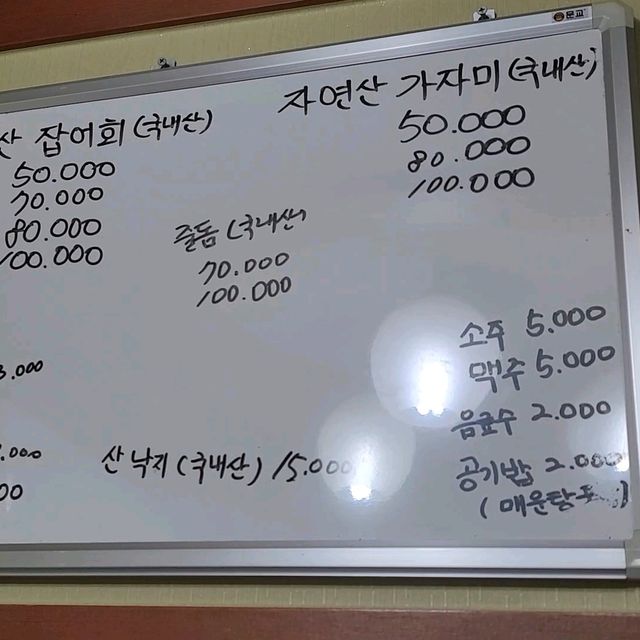 문교
산 잡어회 (국내산)
50.000
70.000
80.000
100.000
자연산 가자미 (국내산)
50.000
80.000
100.000
줄돔 (국내산)
70.000
100.000
소주 5.000
맥주 5.000
음료수 2.000
공기밥 2.000
(매운탕
산 낙지 (국내산) 15.000